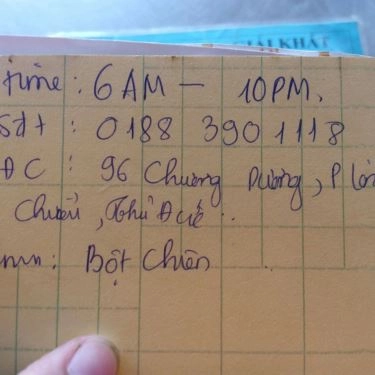 GIẢI KHÁT
time: 6 AM - 10PM.
Sđt : 0188 390 1118
ĐC : 96 Chương Dương, P lin
Chiểu, Thủ Đức..
mn: Bột Chiên